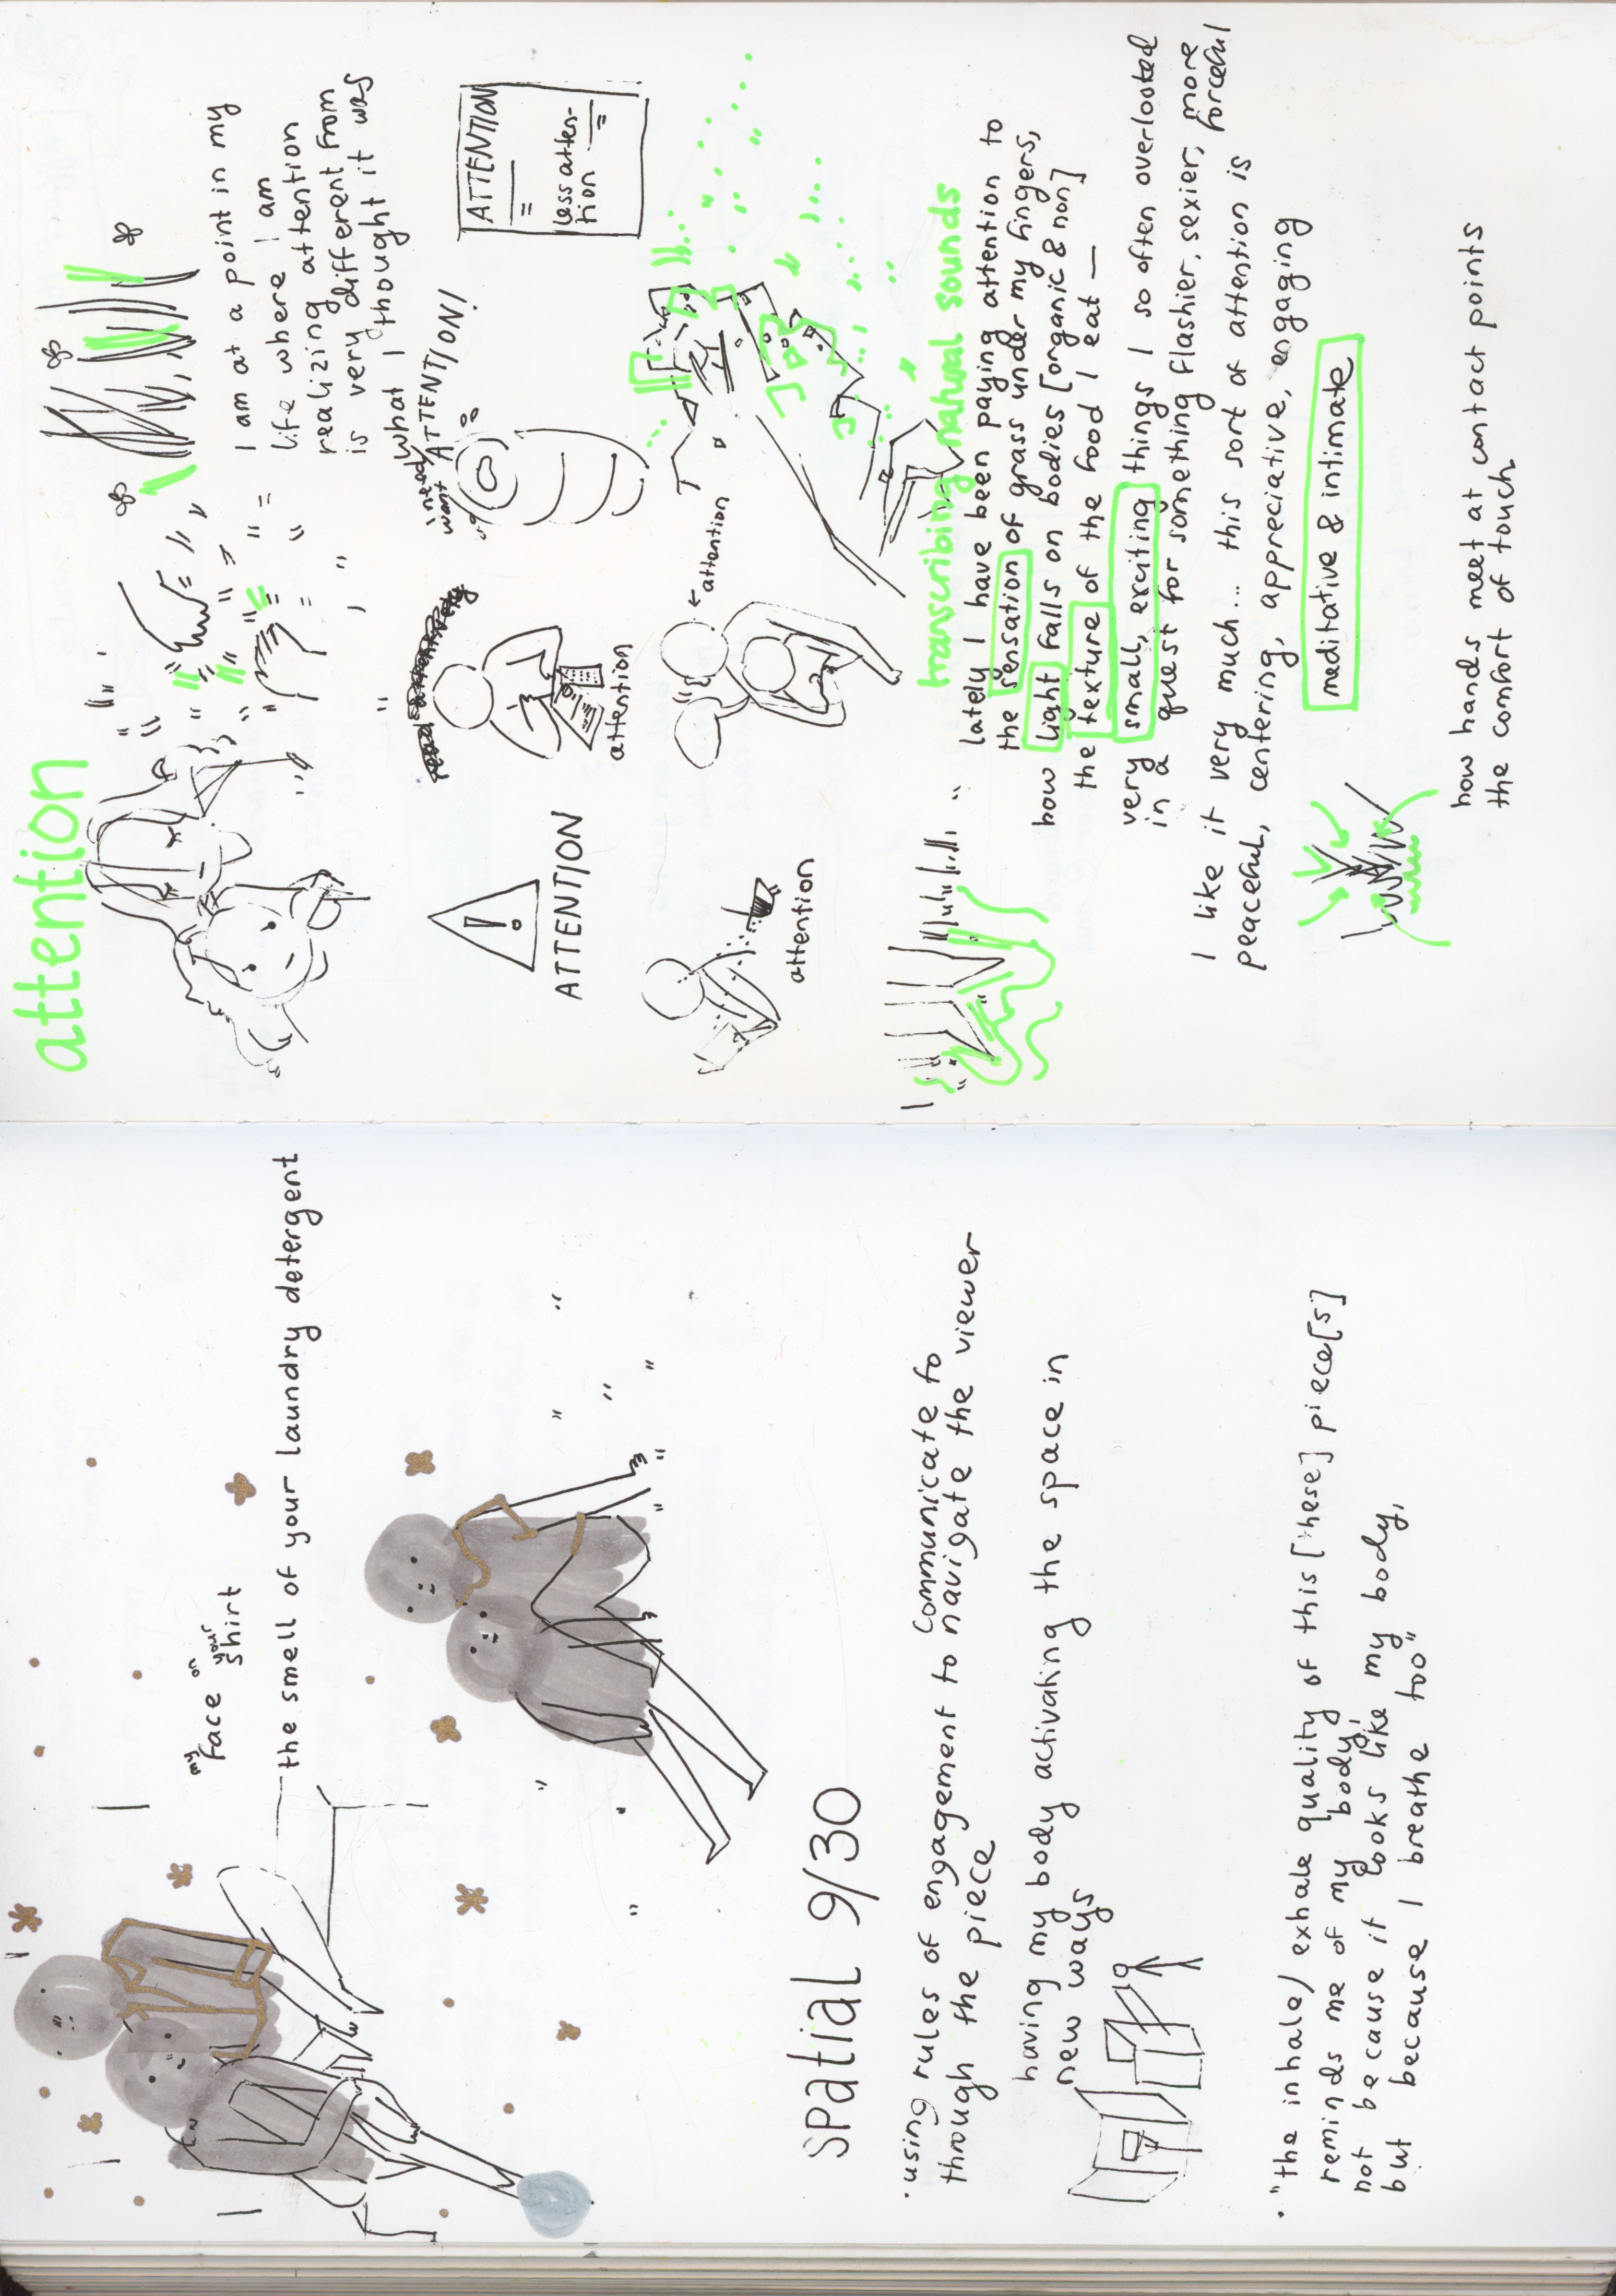 my
face on your
shirt
the smell of your laundry detergent
SPatial 9/30
• using rules of engagement to communicate to
through the piece to navigate the viewer
having my body activating the space in
new ways
• "the inhale/exhale quality of this [these] piece[s]
reminds me of my body,
not because it looks like my body,
but because I breathe too"
attention
I am at a point in my
life where I am
realizing attention
is very different from
what I thought it was
I need/
want ATTENTION!
ATTENTION
=
less atten-
tion =
ATTENTION
attention
attention
attention
transcribing natural sounds
lately I have been paying attention to
the sensation of grass under my fingers,
how light falls on bodies [organic & non]
the texture of the food I eat —
very small, exciting things I so often overlooked
in a quest for something flashier, sexier, more
forceful
I like it very much... this sort of attention is
peaceful, centering, appreciative, engaging
meditative & intimate
how hands meet at contact points
the comfort of touch